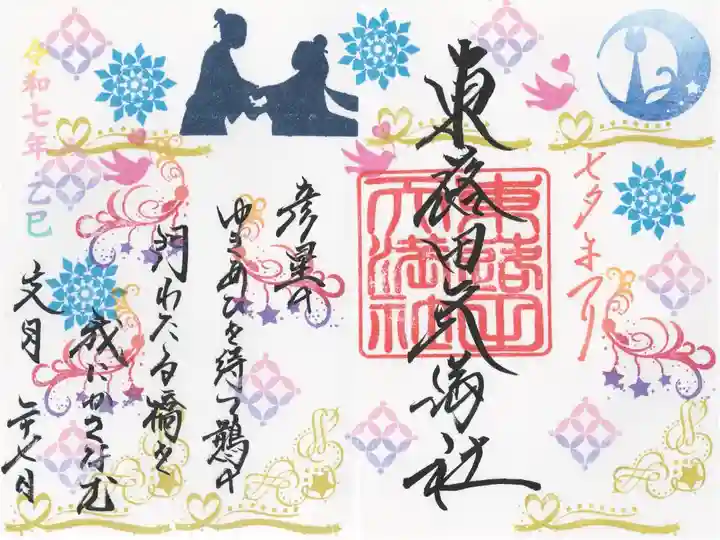 七夕まつり
東蕗田天満社
東蕗田
天満社
彦星の
ゆきあひを待つ鵲の
門わたる橋を
我にかさなむ
令和七年 乙巳
文月 廿七日